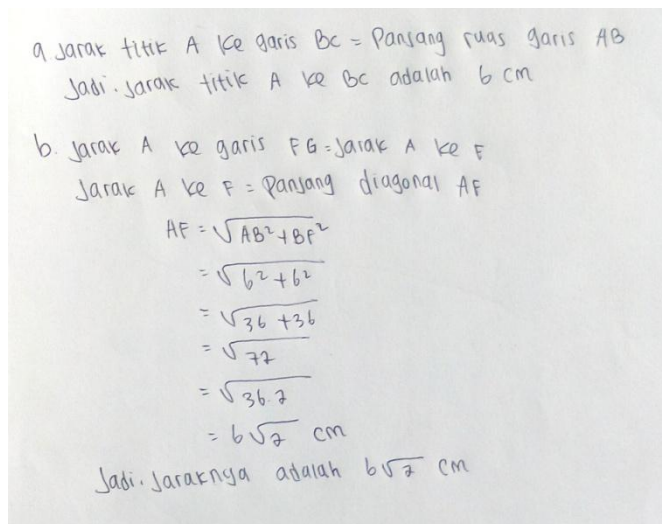 a. Jarak titik A ke garis BC = Panjang ruas garis AB
Jadi. jarak titik A ke BC adalah 6 cm
b. Jarak A ke garis FG = Jarak A ke F
Jarak A ke F = Panjang diagonal AF
AF = √AB²+BF²
= √6²+6²
= √36+36
= √72
= √36.2
= 6√2 cm
Jadi. Jaraknya adalah 6√2 cm